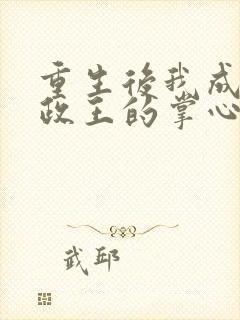 重生後我成
政王的掌心
武邱